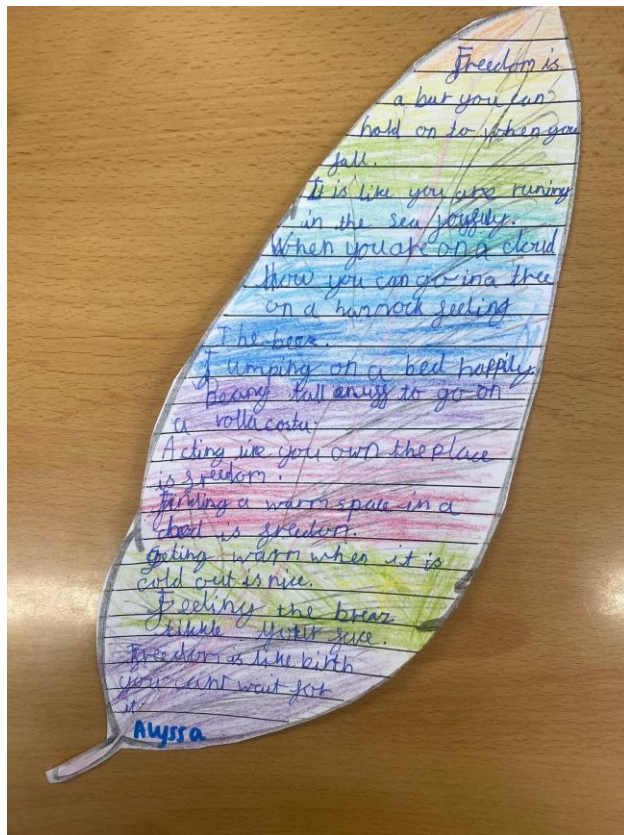 Freedom is
a but you can
hold on to when you
fall.
It is like you are runing
in the sea joyfily.
When you are on a cloud
How you can go in a tree
on a hammock feeling
The beez.
Jumping on a bed happily.
Beang tall enuff to go on
a rolla costu.
Acting like you own the place
is freedom.
finding a warm space in a
bed is freedom.
geting warm when it is
cold out is nice.
Feeling the breaz
tikkle your face.
Freedom is like birth
you cant wait for
it.
Alyssa